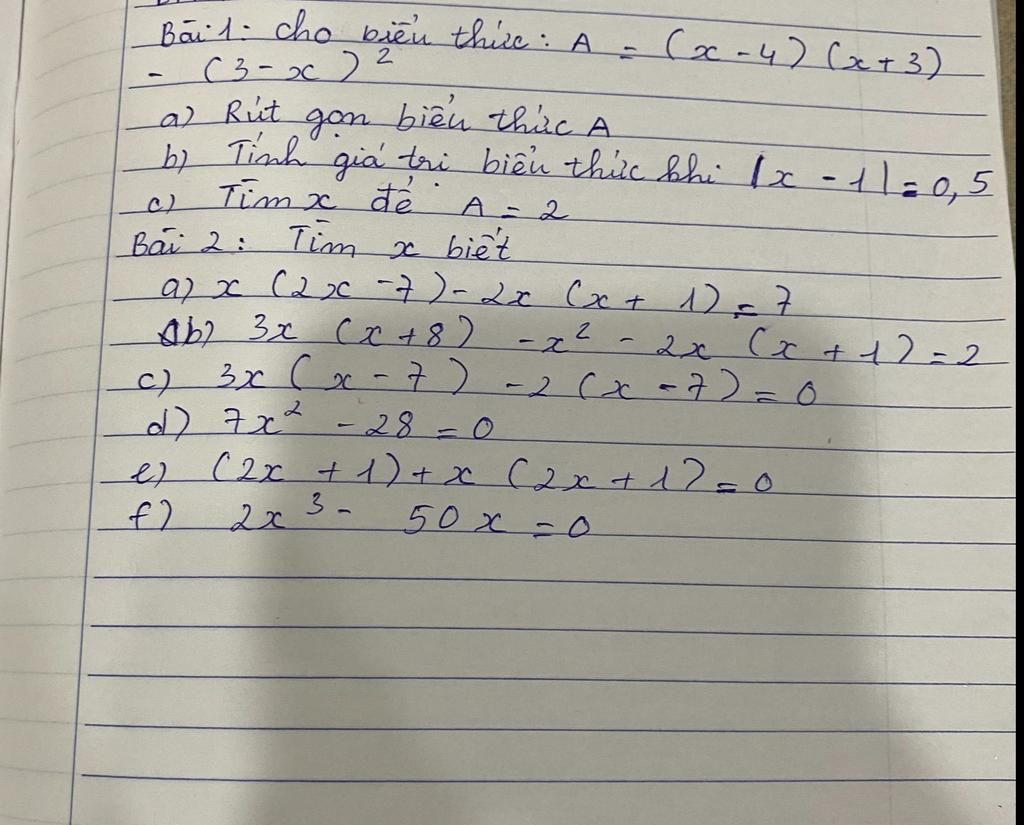 Bài 1: cho biểu thức: A = (x - 4) (x + 3)
- (3 - x)²
a) Rút gọn biểu thức A
b) Tính giá trị biểu thức khi |x - 1| = 0,5
c) Tìm x để A = 2
Bài 2: Tìm x biết
a) x (2x - 7) - 2x (x + 1) = 7
b) 3x (x + 8) - x² - 2x (x + 1) = 2
c) 3x (x - 7) - 2 (x - 7) = 0
d) 7x² - 28 = 0
e) (2x + 1) + x (2x + 1) = 0
f) 2x³ - 50x = 0